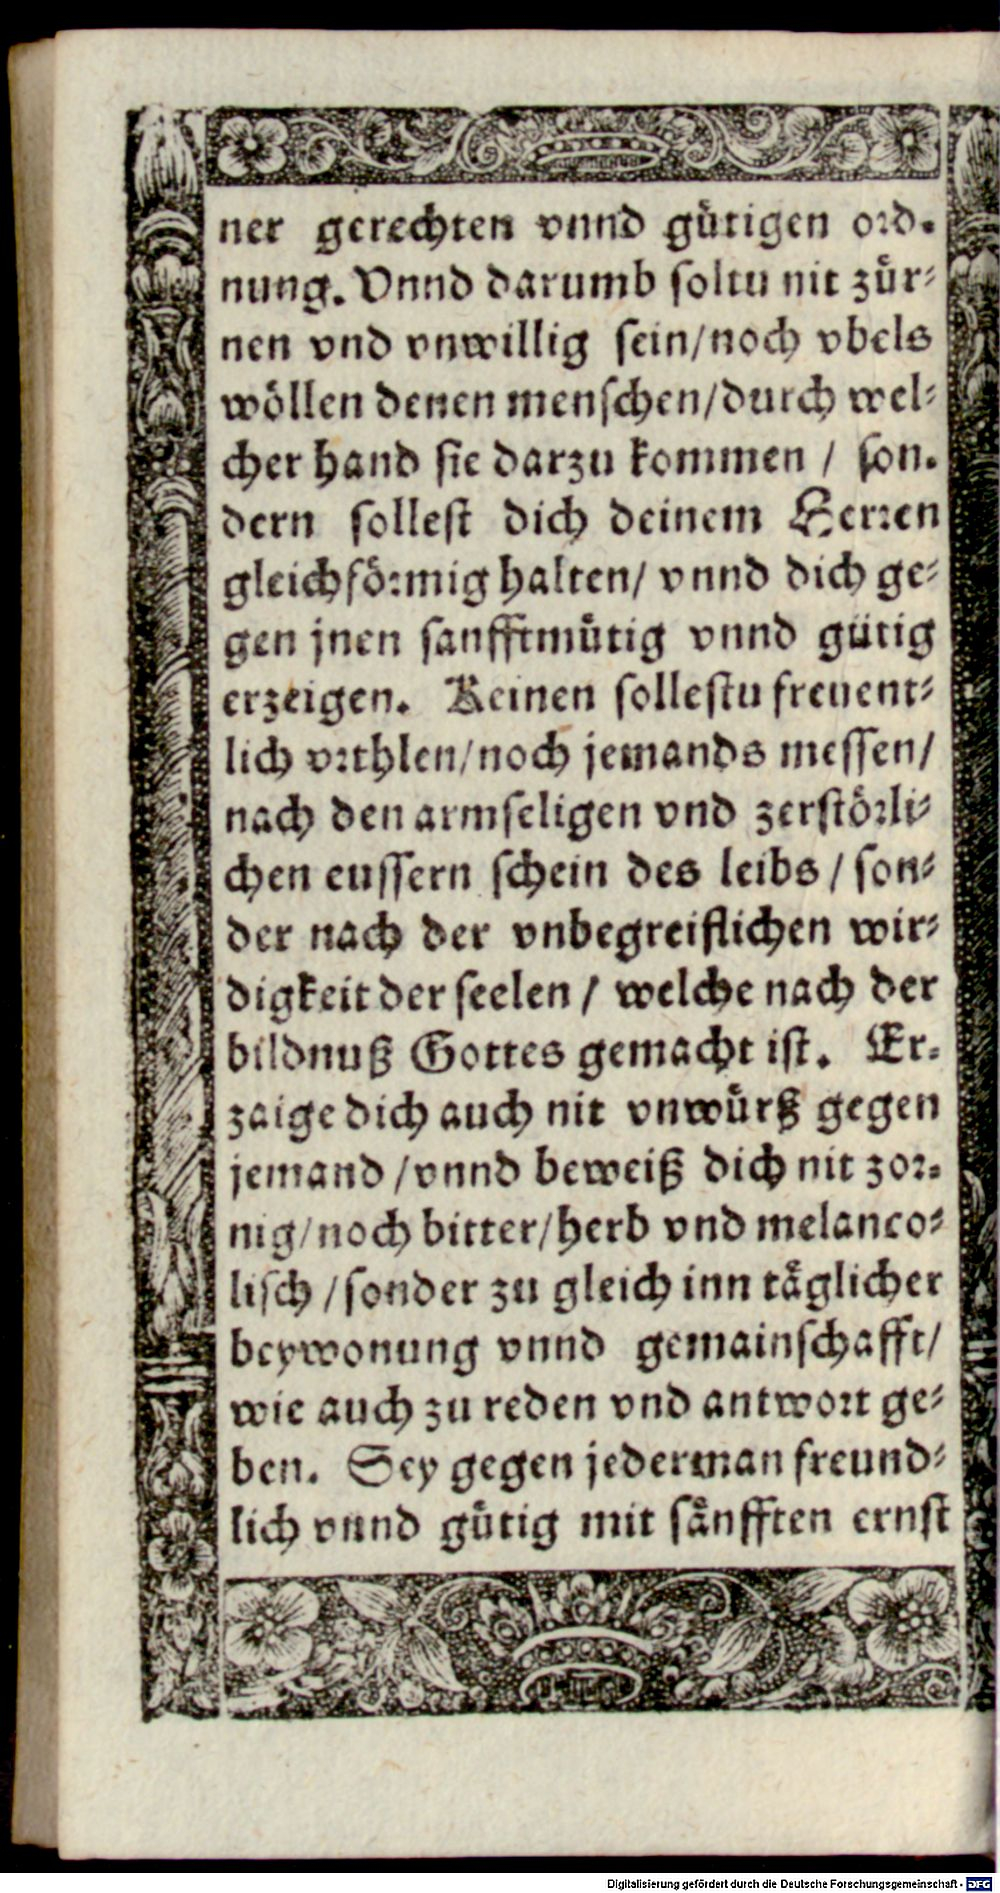 ner gerechten vnnd gütigen ord-
nung. Vnnd darumb soltu nit zür-
nen vnd vnwillig sein/noch vbels
wöllen denen menschen/durch wel-
cher hand sie darzu kommen / son-
dern sollest dich deinem Herren
gleichförmig halten/ vnnd dich ge-
gen jnen sanfftmütig vnnd gütig
erzeigen. Keinen sollestu freuent-
lich vrthlen/noch jemands messen/
nach den armseligen vnd zerstörli-
chen eussern schein des leibs / son-
der nach der vnbegreiflichen wir-
digkeit der seelen / welche nach der
bildnuß Gottes gemacht ist. Er-
zaige dich auch nit vnwürß gegen
jemand /vnnd beweiß dich nit zor-
nig/noch bitter/herb vnd melanco-
lisch /sonder zu gleich inn täglicher
beywonung vnnd gemainschafft/
wie auch zu reden vnd antwort ge-
ben. Sey gegen jederman freund-
lich vnnd gütig mit sänfften ernst
Digitalisierung gefördert durch die Deutsche Forschungsgemeinschaft - DFG